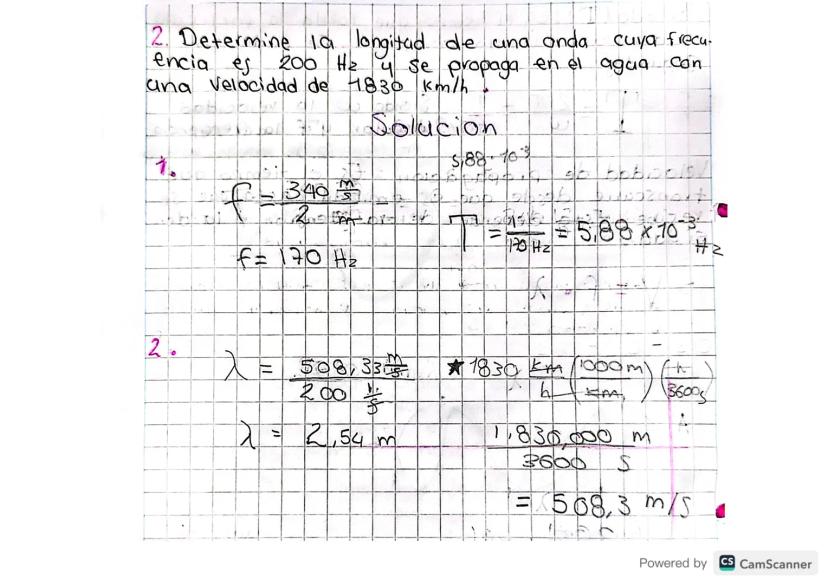 2. Determine la longitud de una onda cuya frecu-
encia es 200 Hz y se propaga en el agua con
una velocidad de 1830 km/h.
Solucion
5,88·10⁻³
1.
f = 340 m/s / 2 m
T = 1 / 170 Hz = 5,88 × 10⁻³ Hz
f = 170 Hz
2.
λ = 508,33 m/s / 200
★ 1830 km/h (1000m / km) (h / 3600s)
λ = 2,54 m
1,830,000 m / 3600 s
= 508,3 m/s
Powered by CS CamScanner